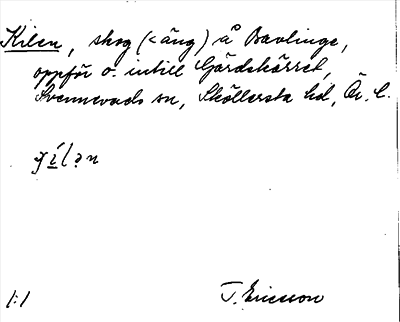 Kilen, skog (< äng) å Bavlinge,
oppför o. intill Gårdskärret,
Svennevads sn, Sköllersta hd, Ör. l.
1:1 T. Ericsson